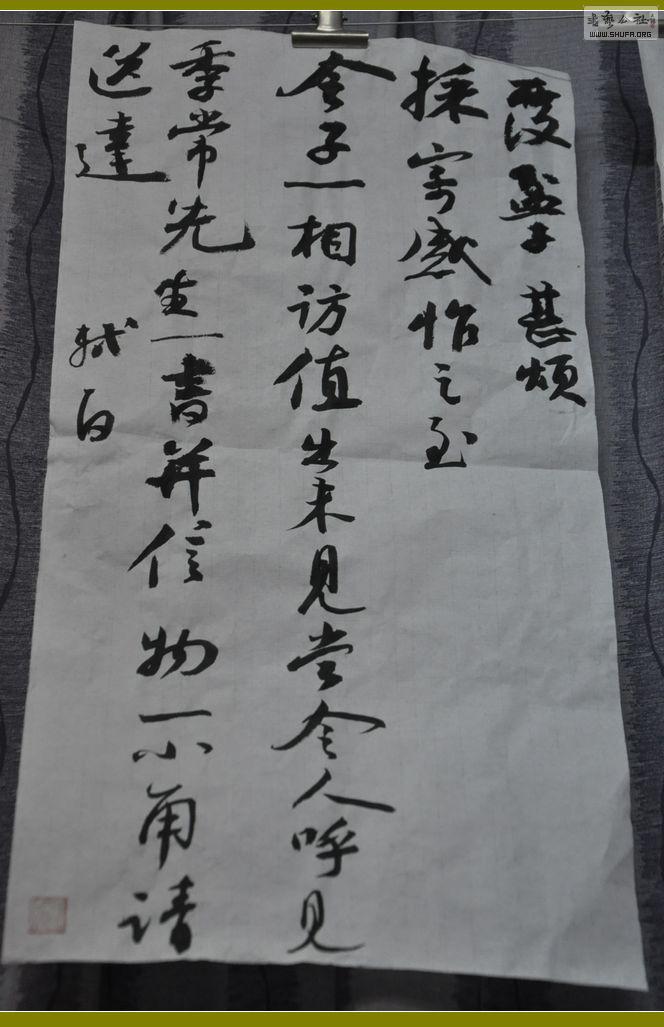 覆盆子甚煩
採寄感怍之至
令子一相訪值出未見當令人呼見
季常先生一書并信物一小角請
送達
軾白
書藝公社
WWW.SHUFA.ORG